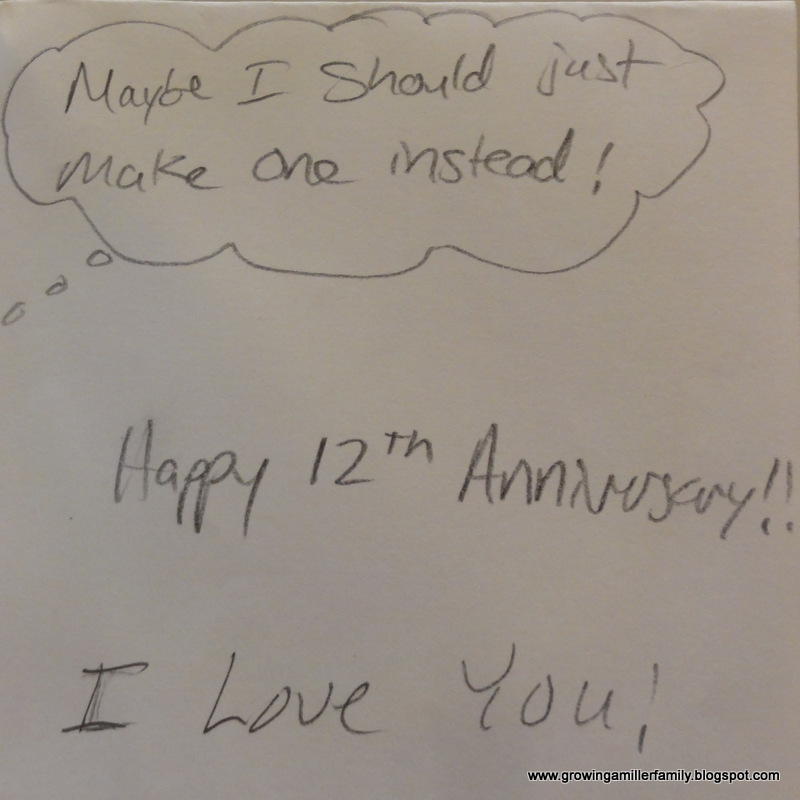 Maybe I Should just
make one instead!
Happy 12th Anniversary!!
I Love You!
www.growingamillerfamily.blogspot.com